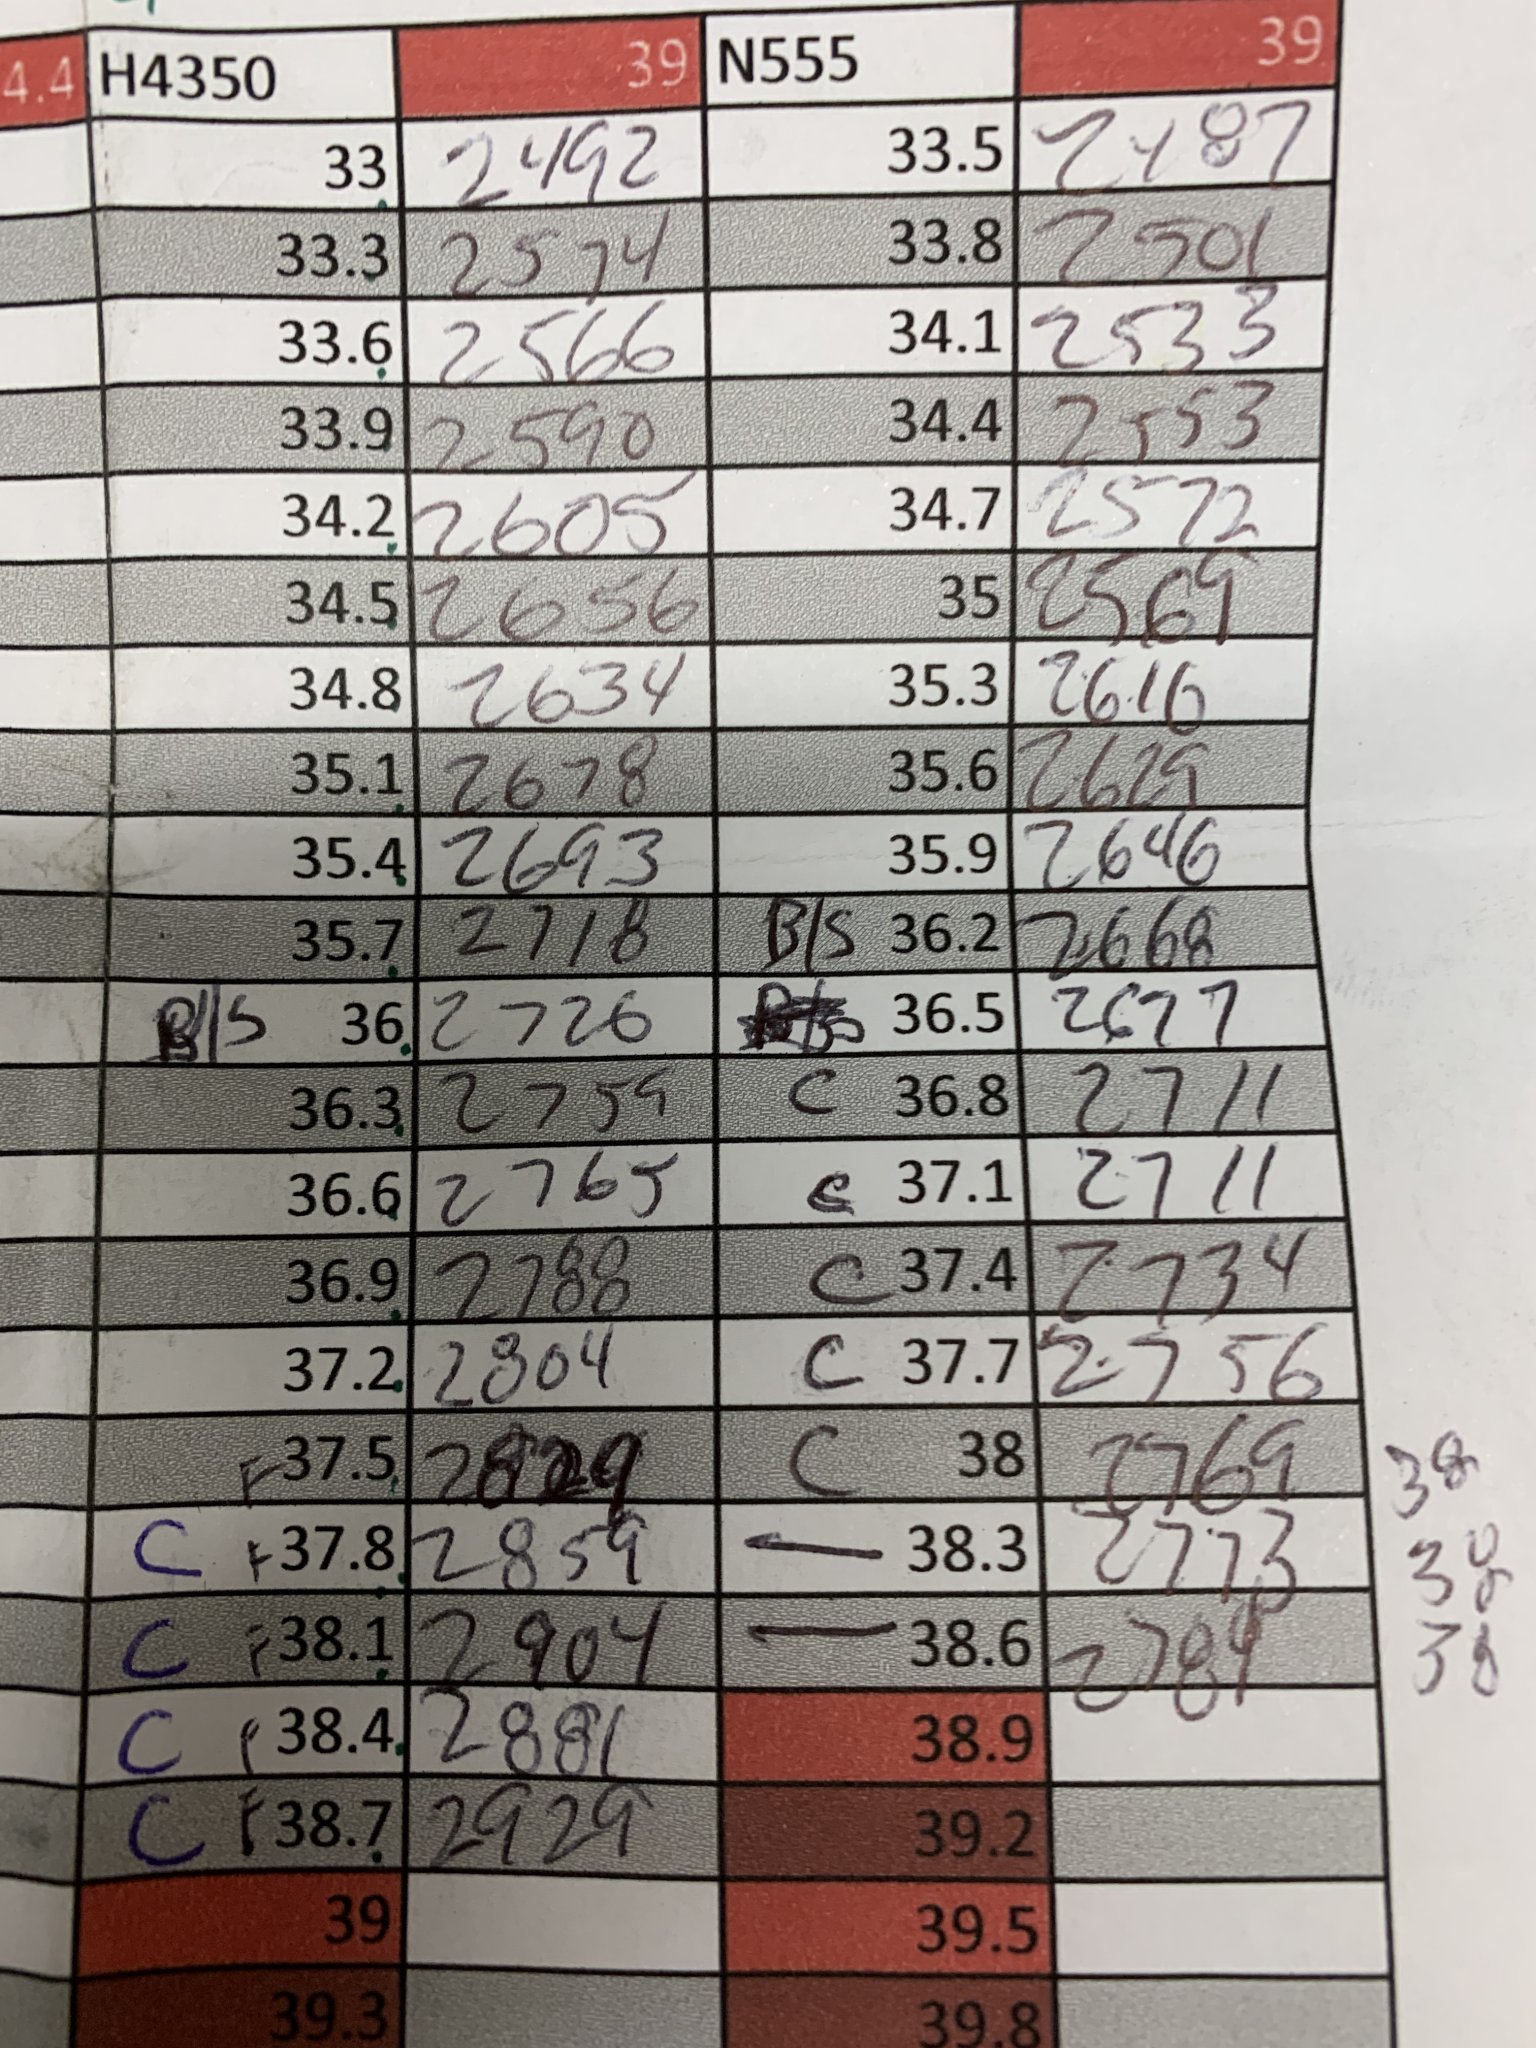 4.4 H4350 39 N555 39
33 2492 33.5 2487
33.3 2574 33.8 2501
33.6 2566 34.1 2533
33.9 2590 34.4 2553
34.2 2605 34.7 2572
34.5 2656 35 2569
34.8 2634 35.3 2616
35.1 2678 35.6 2629
35.4 2693 35.9 2646
35.7 2718 B/S 36.2 2668
B/S 36 2726 36.5 2677
36.3 2759 C 36.8 2711
36.6 2765 C 37.1 2711
36.9 2788 C 37.4 2734
37.2 2804 C 37.7 2756
F 37.5 2829 C 38 2769 38
C F 37.8 2859 — 38.3 2773 38
C F 38.1 2904 — 38.6 2784 38
C F 38.4 2881 38.9
C F 38.7 2929 39.2
39 39.5
39.3 39.8